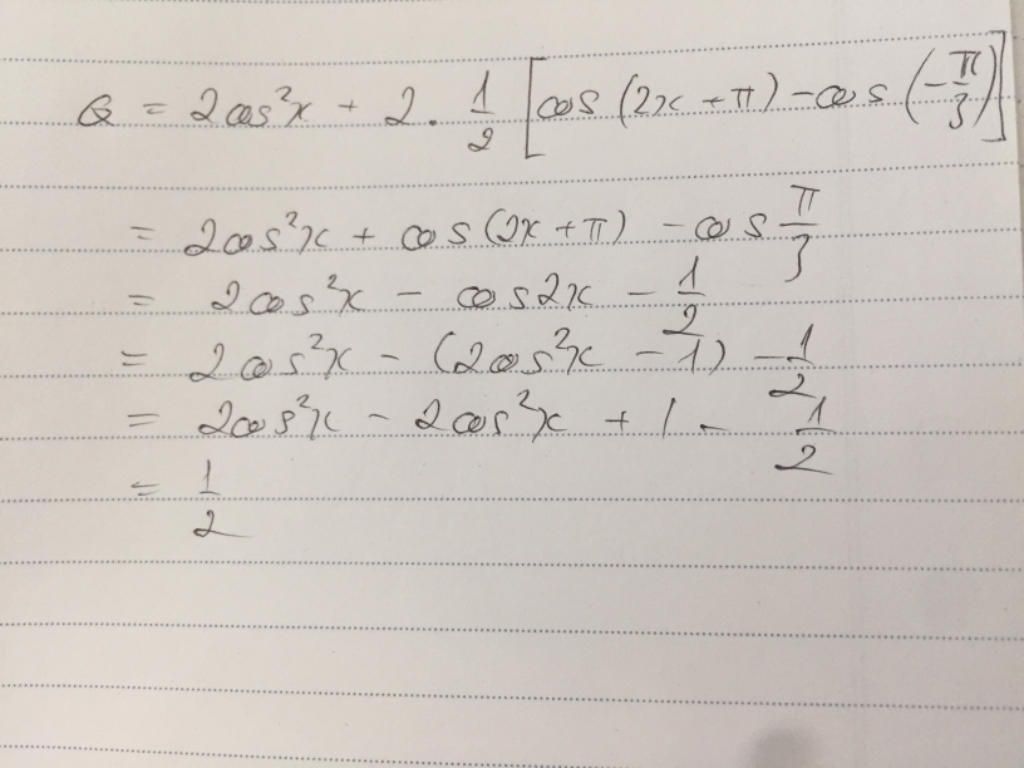 Q = 2cos²x + 2. 1/2 [cos (2x + π) - cos (-π/3)]
= 2cos²x + cos (2x + π) - cos π/3
= 2cos²x - cos2x - 1/2
= 2cos²x - (2cos²x - 1) - 1/2
= 2cos²x - 2cos²x + 1 - 1/2
= 1/2